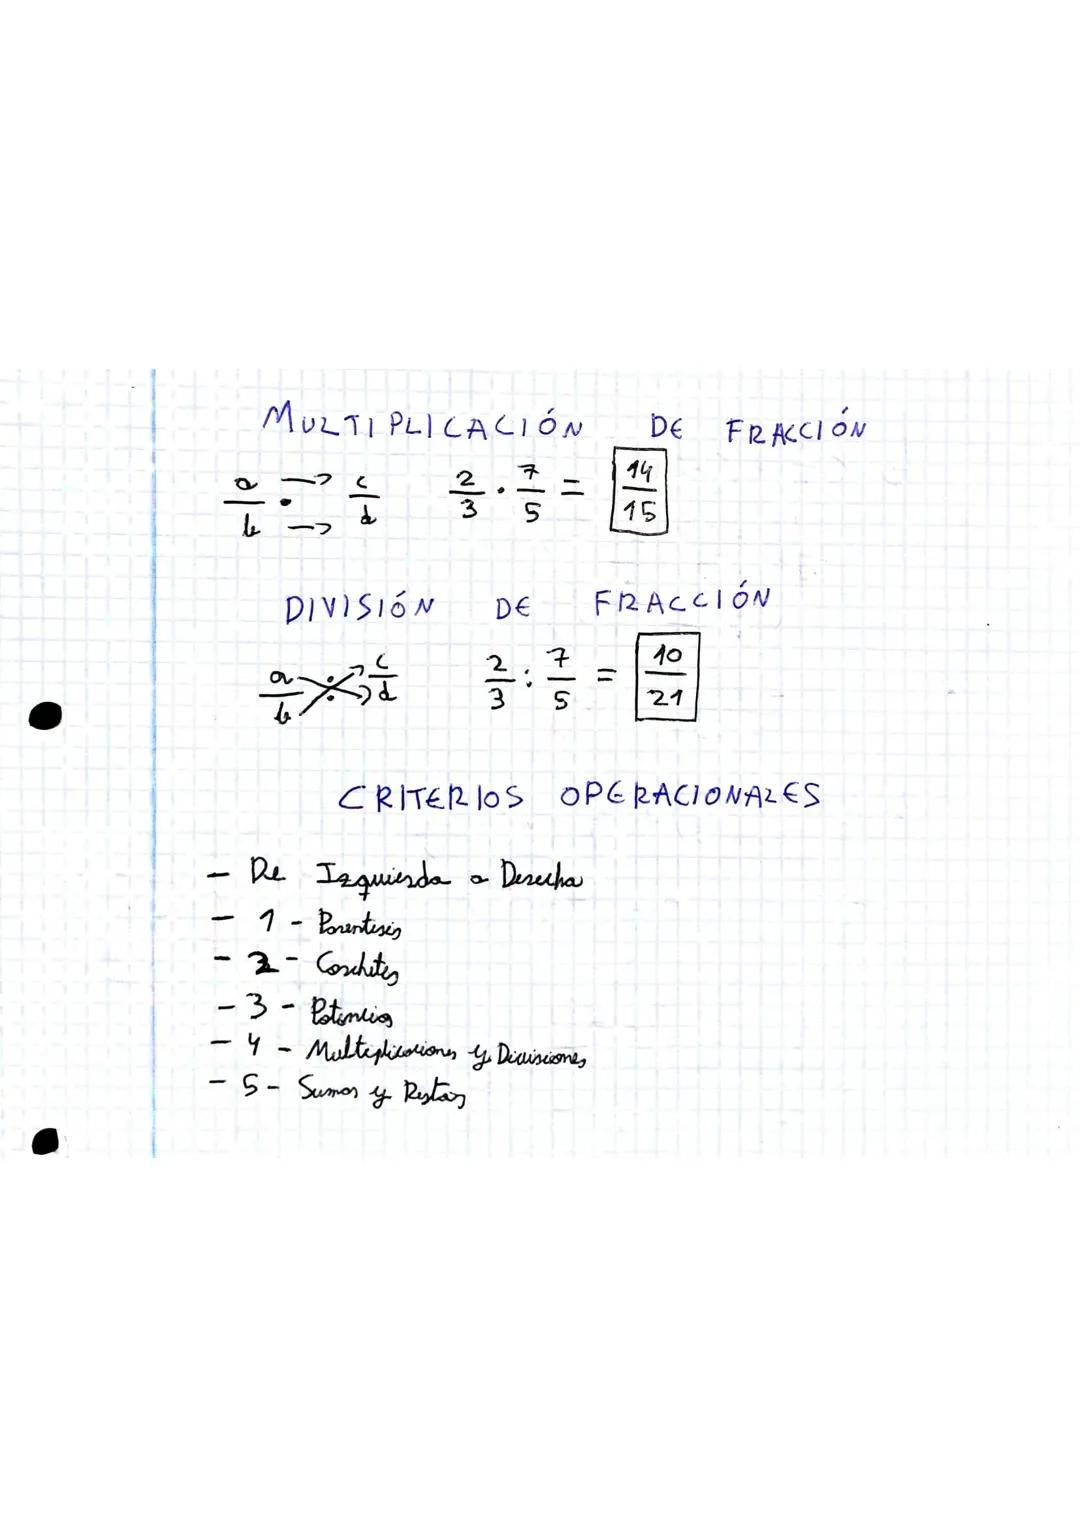 MULTIPLICACIÓN DE FRACCIÓN
a/b · → → c/d 2/3 · 7/5 = 14/15
DIVISIÓN DE FRACCIÓN
a/b ÷ c/d 2/3 : 7/5 = 10/21
CRITERIOS OPERACIONALES
- De Izquierda a Derecha
- 1 - Parentisis
- 2 - Corchites
- 3 - Potencias
- 4 - Multiplicaciones y Divisiones
- 5 - Sumas y Restas